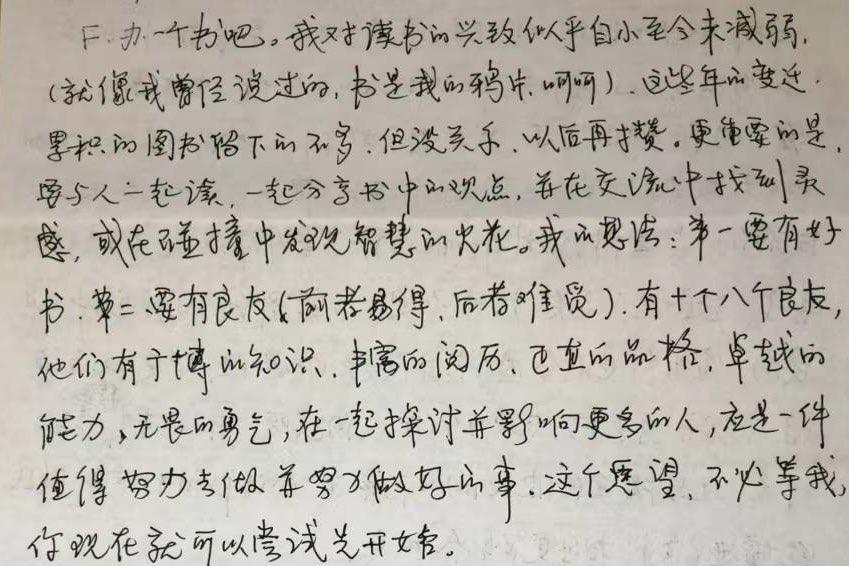 F.办一个书吧。我对读书的兴致似乎自小至今未减弱,
(就像我曾经说过的,书是我的鸦片,呵呵).这些年的变迁.
累积的图书留下的不多.但没关系.以后再攒。更重要的是,
要与人一起读,一起分享书中的观点,并在交流中找到灵
感,或在碰撞中发现智慧的火花。我的想法:第一要有好
书.第二要有良友(前者易得,后者难觅).有十个八个良友,
他们有广博的知识.丰富的阅历.正直的品格.卓越的
能力,无畏的勇气,在一起探讨并影响更多的人,应是一件
值得努力去做并努力做好的事.这个愿望,不必等我,
你现在就可以尝试先开始。